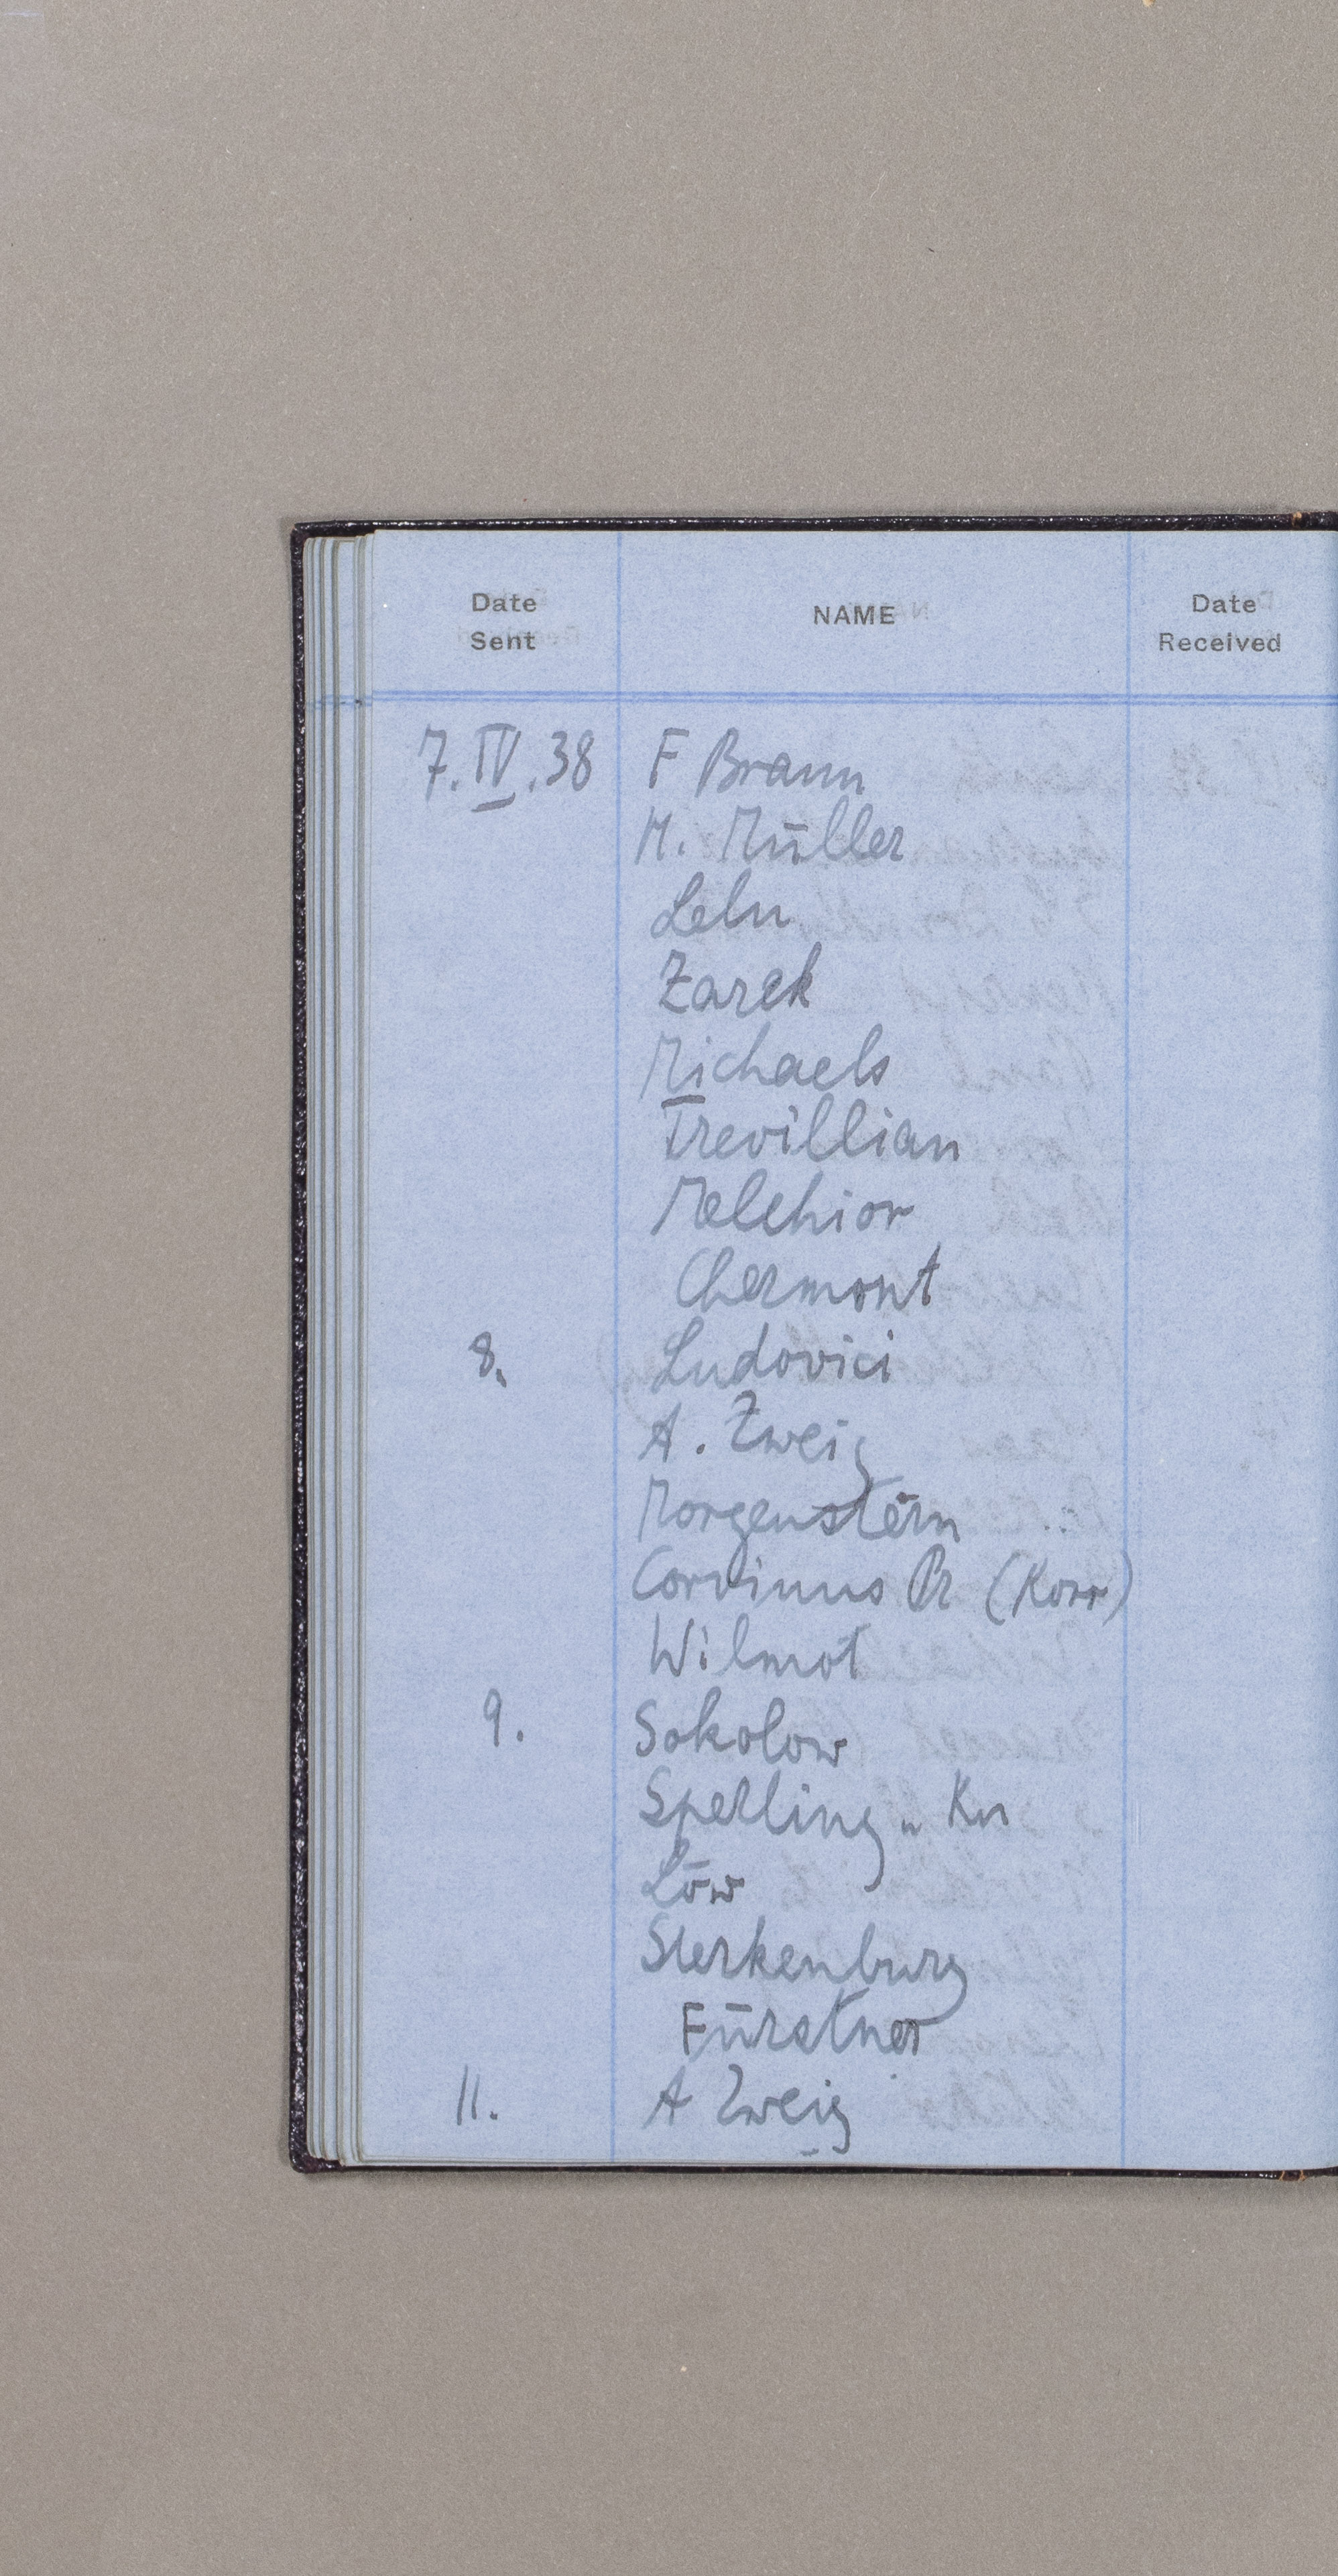 Date Sent NAME Date Received
7. IV. 38 F Braun
M. Müller
Zarek
Michaels
Trevillian
Melchior
Chermont
8. Ludovici
A. Zweig
Morgenstern
Corvinus Pr (Korr)
Wilmot
9. Sokolow
Sperling u Ku
Löw
Sterkenburg
Fürstner
11. A Zweig